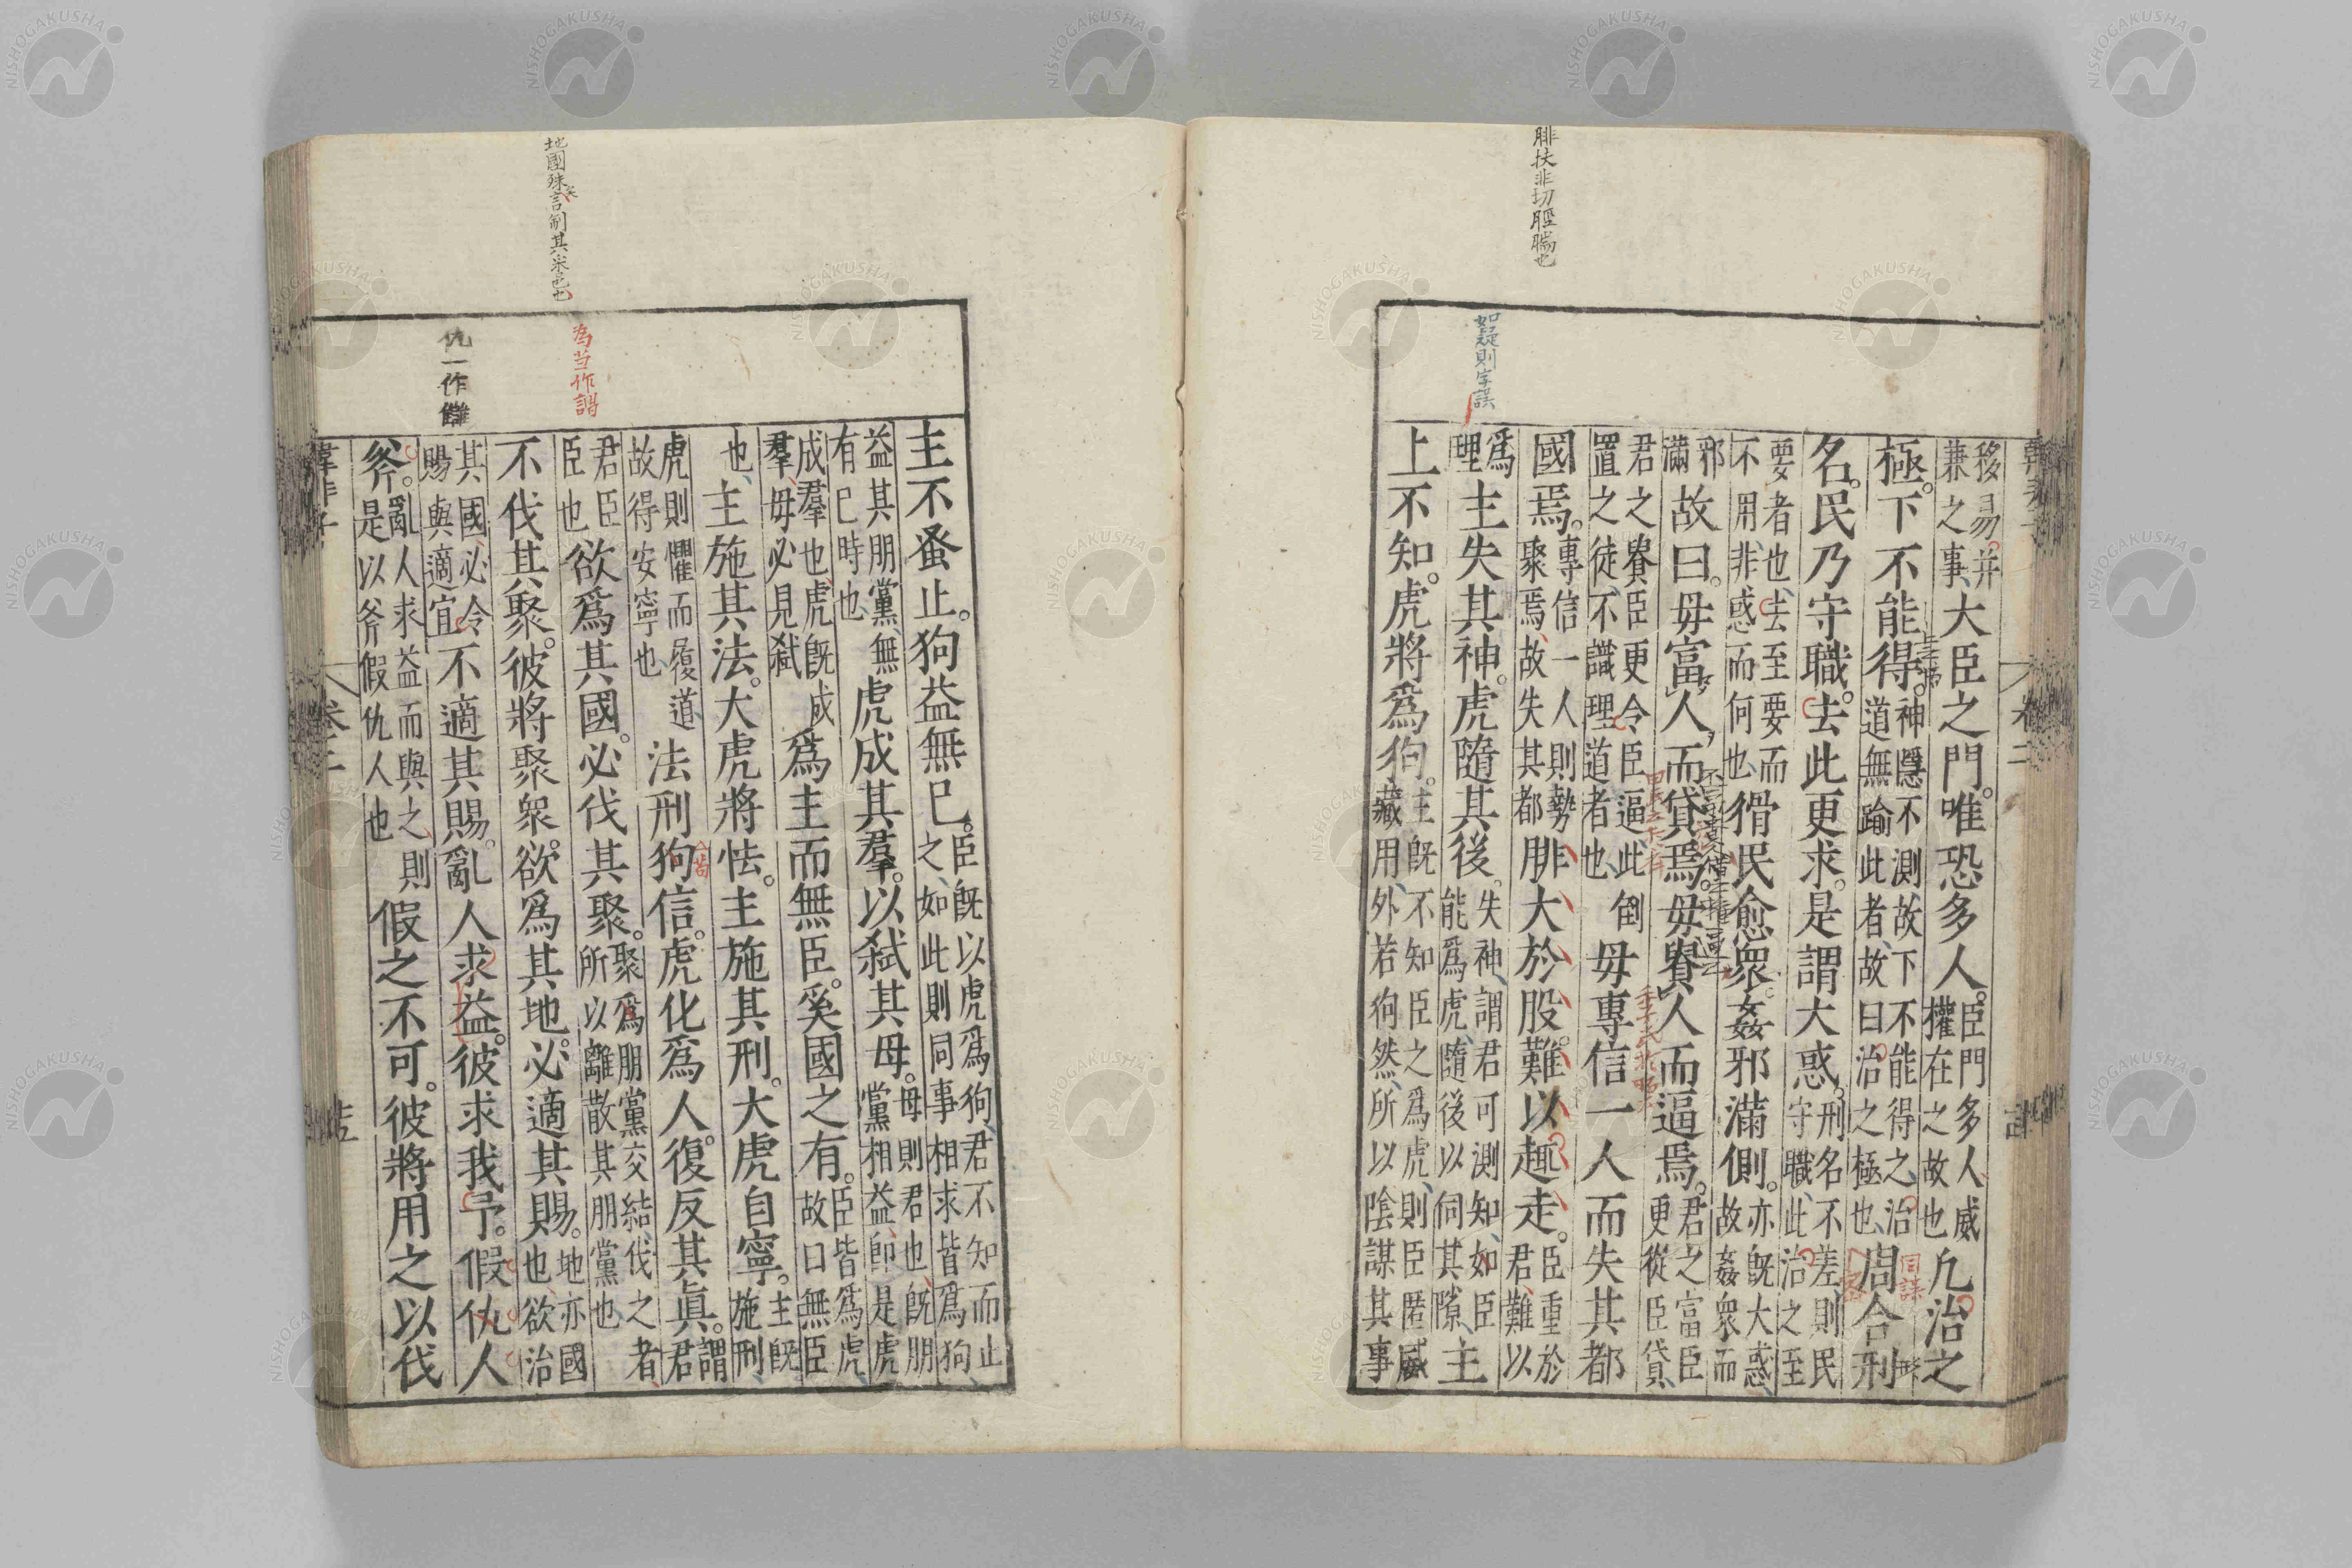 腓扶非切脛腨也
如疑則字誤
移易并兼之事、大臣之門。唯恐多人。臣門多人威權在之故也凡治之
極。下不能得。神隱不測故下不能得之、治道無踰此者、故曰治之極也、周合刑
名。民乃守職。去此更求。是謂大惑。刑名不差則民守職、此治之至
要者也、去至要而不用、非惑而何也、猾民愈衆。姦邪滿側。亦既大惑、故姦衆而
邪滿故曰。毋富人而貸焉。毋貴人而逼焉。君之富臣更從臣貸、
君之貴臣更令臣逼、此倒置之徒、不識理道者也、毋專信一人而失其都
國焉。專信一人則勢聚焉、故失其都腓大於股。難以趣走。臣重於君、難以
爲理主失其神。虎隨其後。失神、謂君可測知、如臣能爲虎、隨後以伺其隙、主
上不知。虎將爲狗。主既不知臣之爲虎、則臣匿威藏用、外若狗然、所以陰謀其事
卷二
地國殊言制其采邑也
為当作謂
仇一作讎
主不蚤止。狗益無已。臣既以虎爲狗、君不知而止之、如此則同事相求皆爲狗、
益其朋黨、無有已時也、虎成其羣。以弑其母。母則君也、既朋黨相益、即是虎
成羣也、虎既成羣、毋必見弑爲主而無臣。奚國之有。臣皆爲虎故曰無臣
也、主施其法。大虎將怯。主施其刑。大虎自寧。主既施刑、
虎則懼而履道、故得安寧也、法刑狗信。虎化爲人。復反其眞。謂君
君臣臣也欲爲其國。必伐其聚。聚爲朋黨交結、伐之者、所以離散其朋黨也、
不伐其聚。彼將聚衆。欲爲其地。必適其賜。地亦國也、欲治
其國、必令賜與適宜不適其賜。亂人求益。彼求我予。假仇人
斧。亂人求益而與之、則是以斧假仇人也假之不可。彼將用之以伐